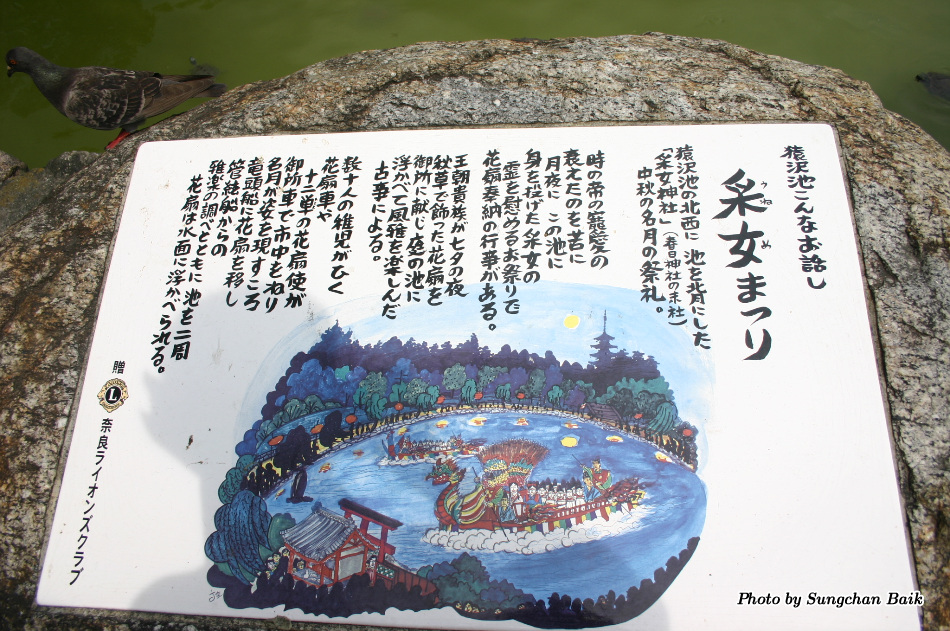 猿沢池こんなお話し
うねめ
采女まつり
猿沢池の北西に 池を背にした
「采女神社」（春日神社の末社）
中秋の名月の祭礼。
時の帝の寵愛の
衰えたのを苦に
月夜に この池に
身を投げた采女の
霊を慰めるお祭りで
花扇奉納の行事がある。
王朝貴族が七夕の夜
秋草で飾った花扇を
御所に献じ 夜の池に
浮かべて風雅を楽しんだ
古事による。
数十人の稚児がひく
花扇車や
十二単の花扇使が
御所車で市中をねり
名月が姿を現すころ
竜頭船に花扇を移し
管絃船からの
雅楽の調べとともに 池を二周
花扇は水面に浮かべられる。
贈
L
奈良ライオンズクラブ
Photo by Sungchan Baik